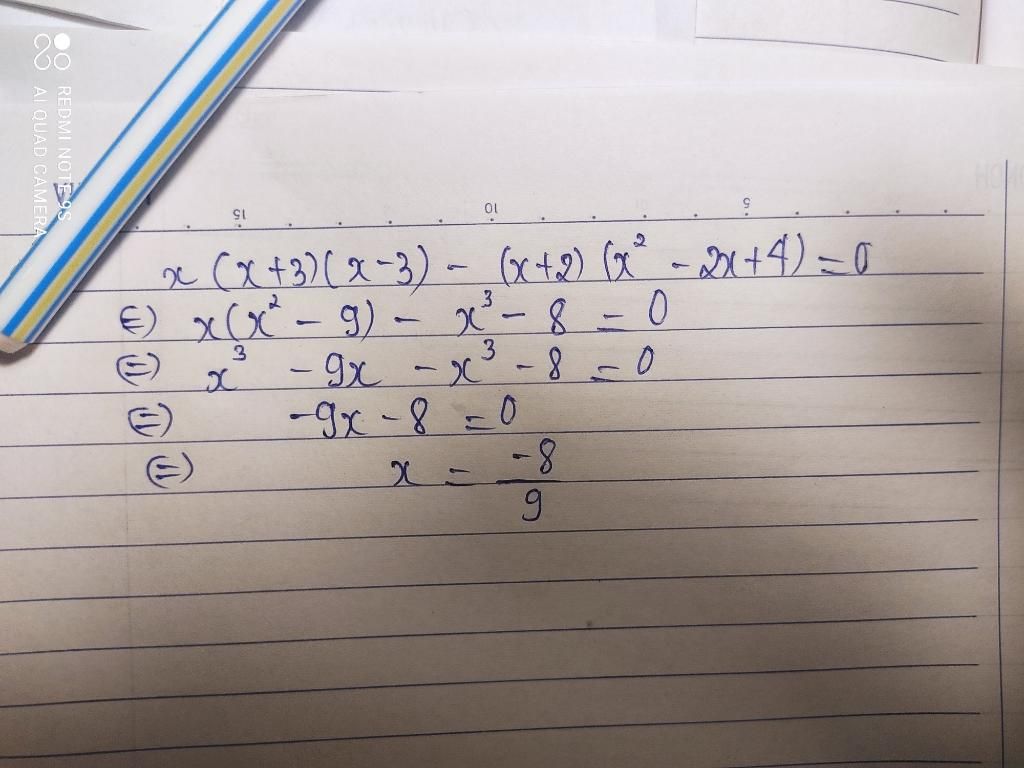 REDMI NOTE 9S
AI QUAD CAMERA
15 10 5
x (x+3)(x-3) - (x+2) (x² - 2x+4) = 0
(=) x(x² - 9) - x³ - 8 = 0
(=) x³ - 9x - x³ - 8 = 0
(=) -9x - 8 = 0
(=) x = -8/9